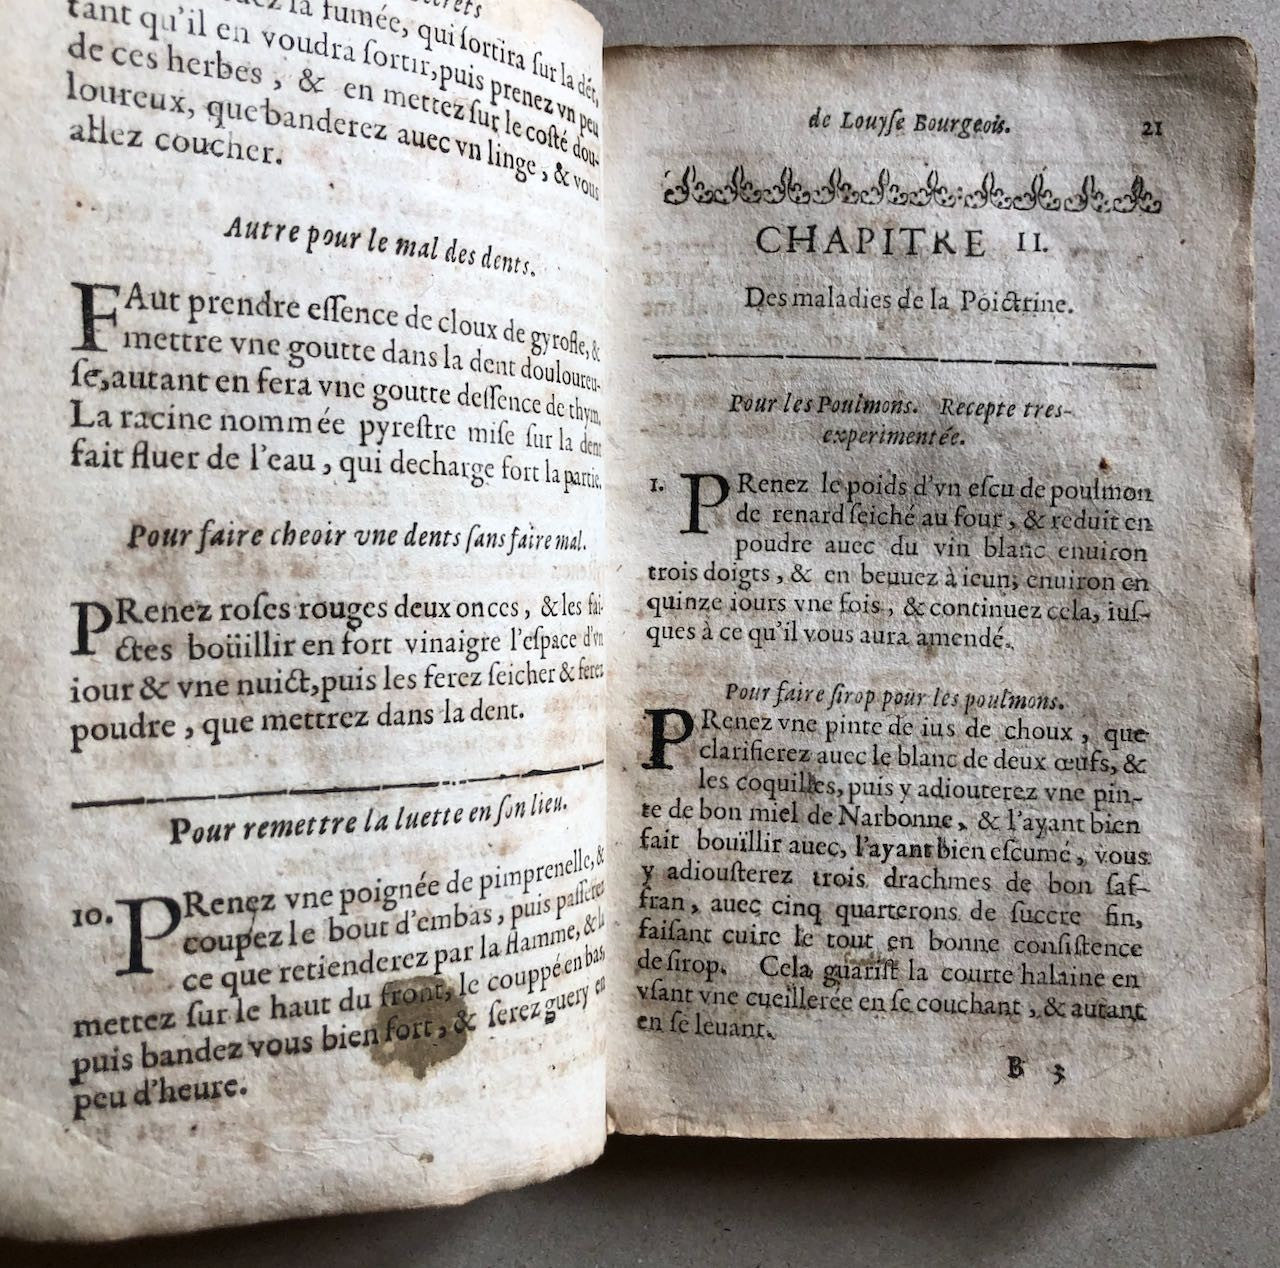 crets
ez la fumée, qui ſortira ſur la dét,
tant qu'il en voudra ſortir, puis prenez vn peu
de ces herbes, & en mettez ſur le coſté dou-
loureux, que banderez auec vn linge, & vous
allez coucher.
Autre pour le mal des dents.
FAut prendre eſſence de cloux de gyrofle, &
mettre vne goutte dans la dent douloureu-
ſe, autant en fera vne goutte deſſence de thym,
La racine nommée pyreſtre miſe ſur la dent
fait fluer de l'eau, qui decharge fort la partie.
Pour faire cheoir vne dents ſans faire mal.
PRenez roſes rouges deux onces, & les fai-
ctes boüillir en fort vinaigre l'eſpace d'vn
iour & vne nuict, puis les ferez ſeicher & ferez
poudre, que mettrez dans la dent.
Pour remettre la luette en ſon lieu.
10. PRenez vne poignée de pimprenelle, &
coupez le bout d'embas, puis paſſerez
ce que retienderez par la flamme, & la
mettez ſur le haut du front, le couppé en bas,
puis bandez vous bien fort, & ſerez guery en
peu d'heure.
de Louyſe Bourgeois. 21
CHAPITRE II.
Des maladies de la Poictrine.
Pour les Poulmons. Recepte tres-
experimentée.
1. PRenez le poids d'vn eſcu de poulmon
de renard ſeiché au four, & reduit en
poudre auec du vin blanc enuiron
trois doigts, & en beuuez à ieun, enuiron en
quinze iours vne fois, & continuez cela, iuſ-
ques à ce qu'il vous aura amendé.
Pour faire ſirop pour les poulmons.
PRenez vne pinte de ius de choux, que
clarifierez auec le blanc de deux œufs, &
les coquilles, puis y adiouterez vne pin-
te de bon miel de Narbonne, & l'ayant bien
fait boüillir auec, l'ayant bien eſcumé, vous
y adiouſterez trois drachmes de bon ſaf-
fran, auec cinq quarterons de ſuccre fin,
faiſant cuire le tout en bonne conſiſtence
de ſirop. Cela guariſt la courte halaine en
vſant vne cueillerée en ſe couchant, & autant
en ſe leuant.
B 3